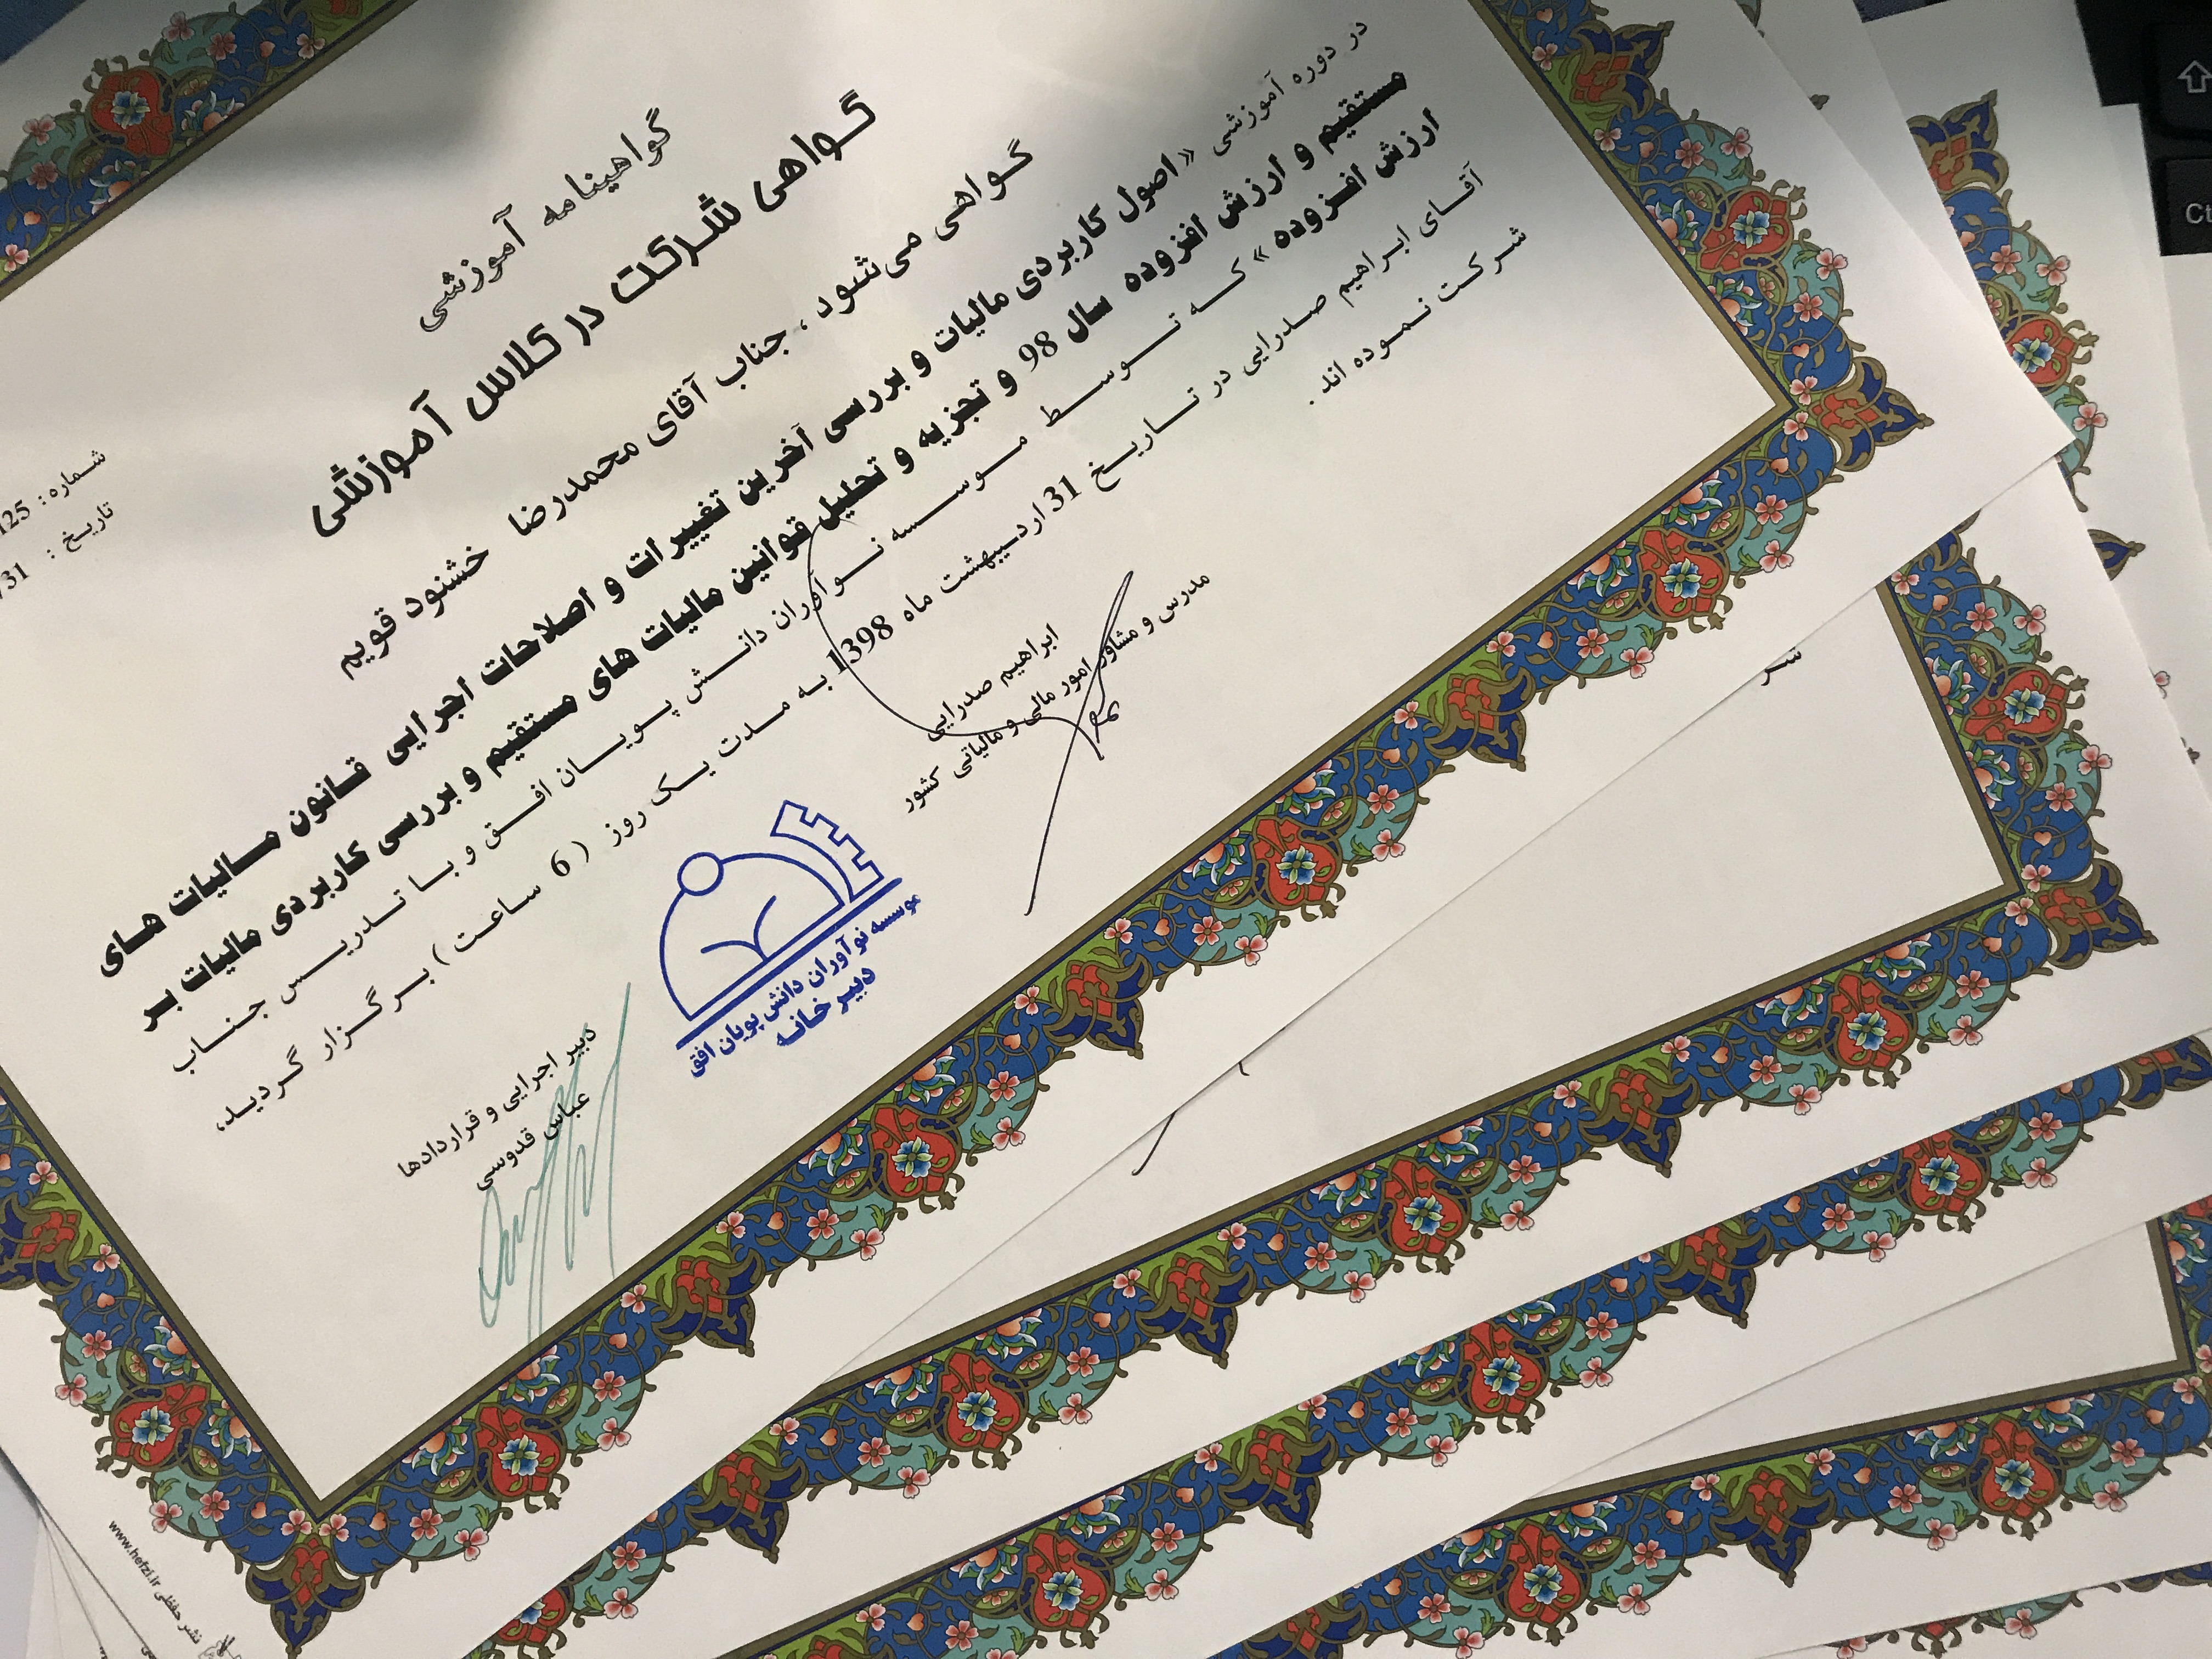 گواهینامه آموزشی
گواهی شرکت در کلاس آموزشی
شماره : 125
تاریخ : 31/
گواهی می‌شود ، جناب آقای محمدرضا خشنود قویم
در دوره آموزشی «اصول کاربردی مالیات و بررسی آخرین تغییرات و اصلاحات اجرایی قانون مالیات های
مستقیم و ارزش افزوده سال 98 و تجزیه و تحلیل قوانین مالیات های مستقیم و بررسی کاربردی مالیات بر
ارزش افزوده» که توسط موسسه نوآوران دانش پویان افق و با تدریس جناب
آقای ابراهیم صدرایی در تاریخ 31 اردیبهشت ماه 1398 به مدت یک روز ( 6 ساعت ) برگزار گردید،
شرکت نموده اند .
ابراهیم صدرایی
مدرس و مشاور امور مالی و مالیاتی کشور
موسسه نوآوران دانش پویان افق
دبیر خانه
دبیر اجرایی و قراردادها
عباس قدوسی
شر
www.hefzi.ir نشر حفظی